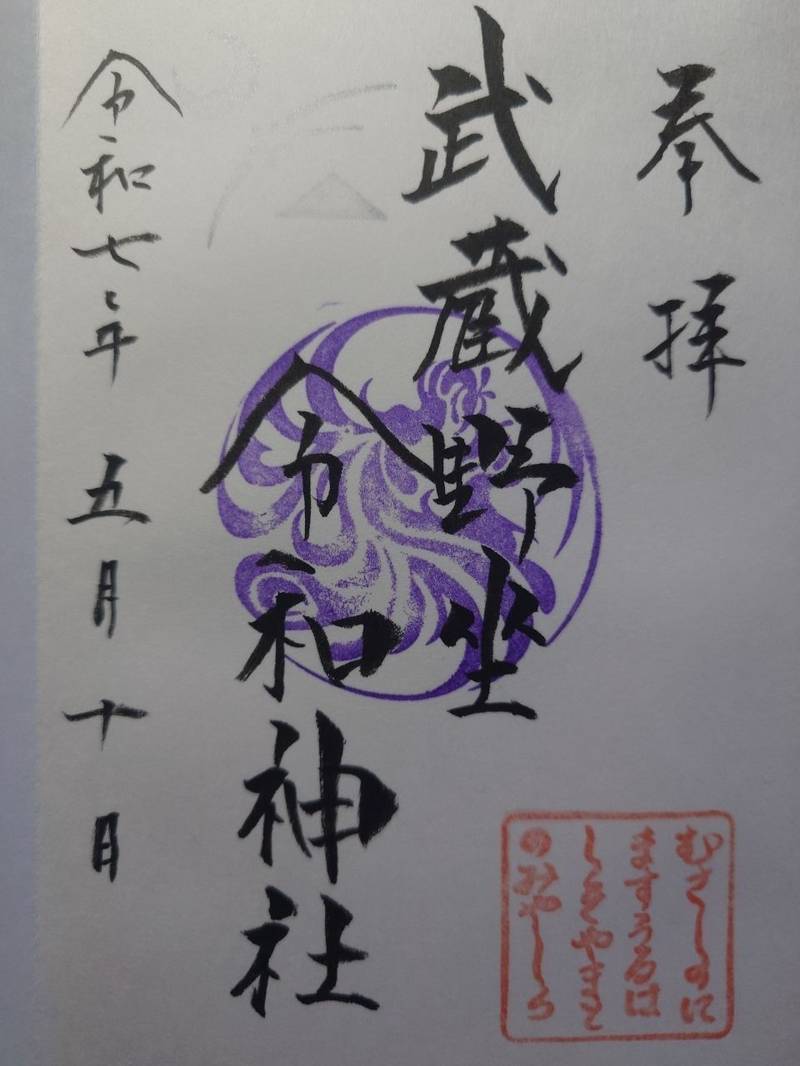 奉拝
武蔵野坐
令和神社
令和七年 五月 十日
むさしのに
ますうるは
しきやまと
のみやしろ